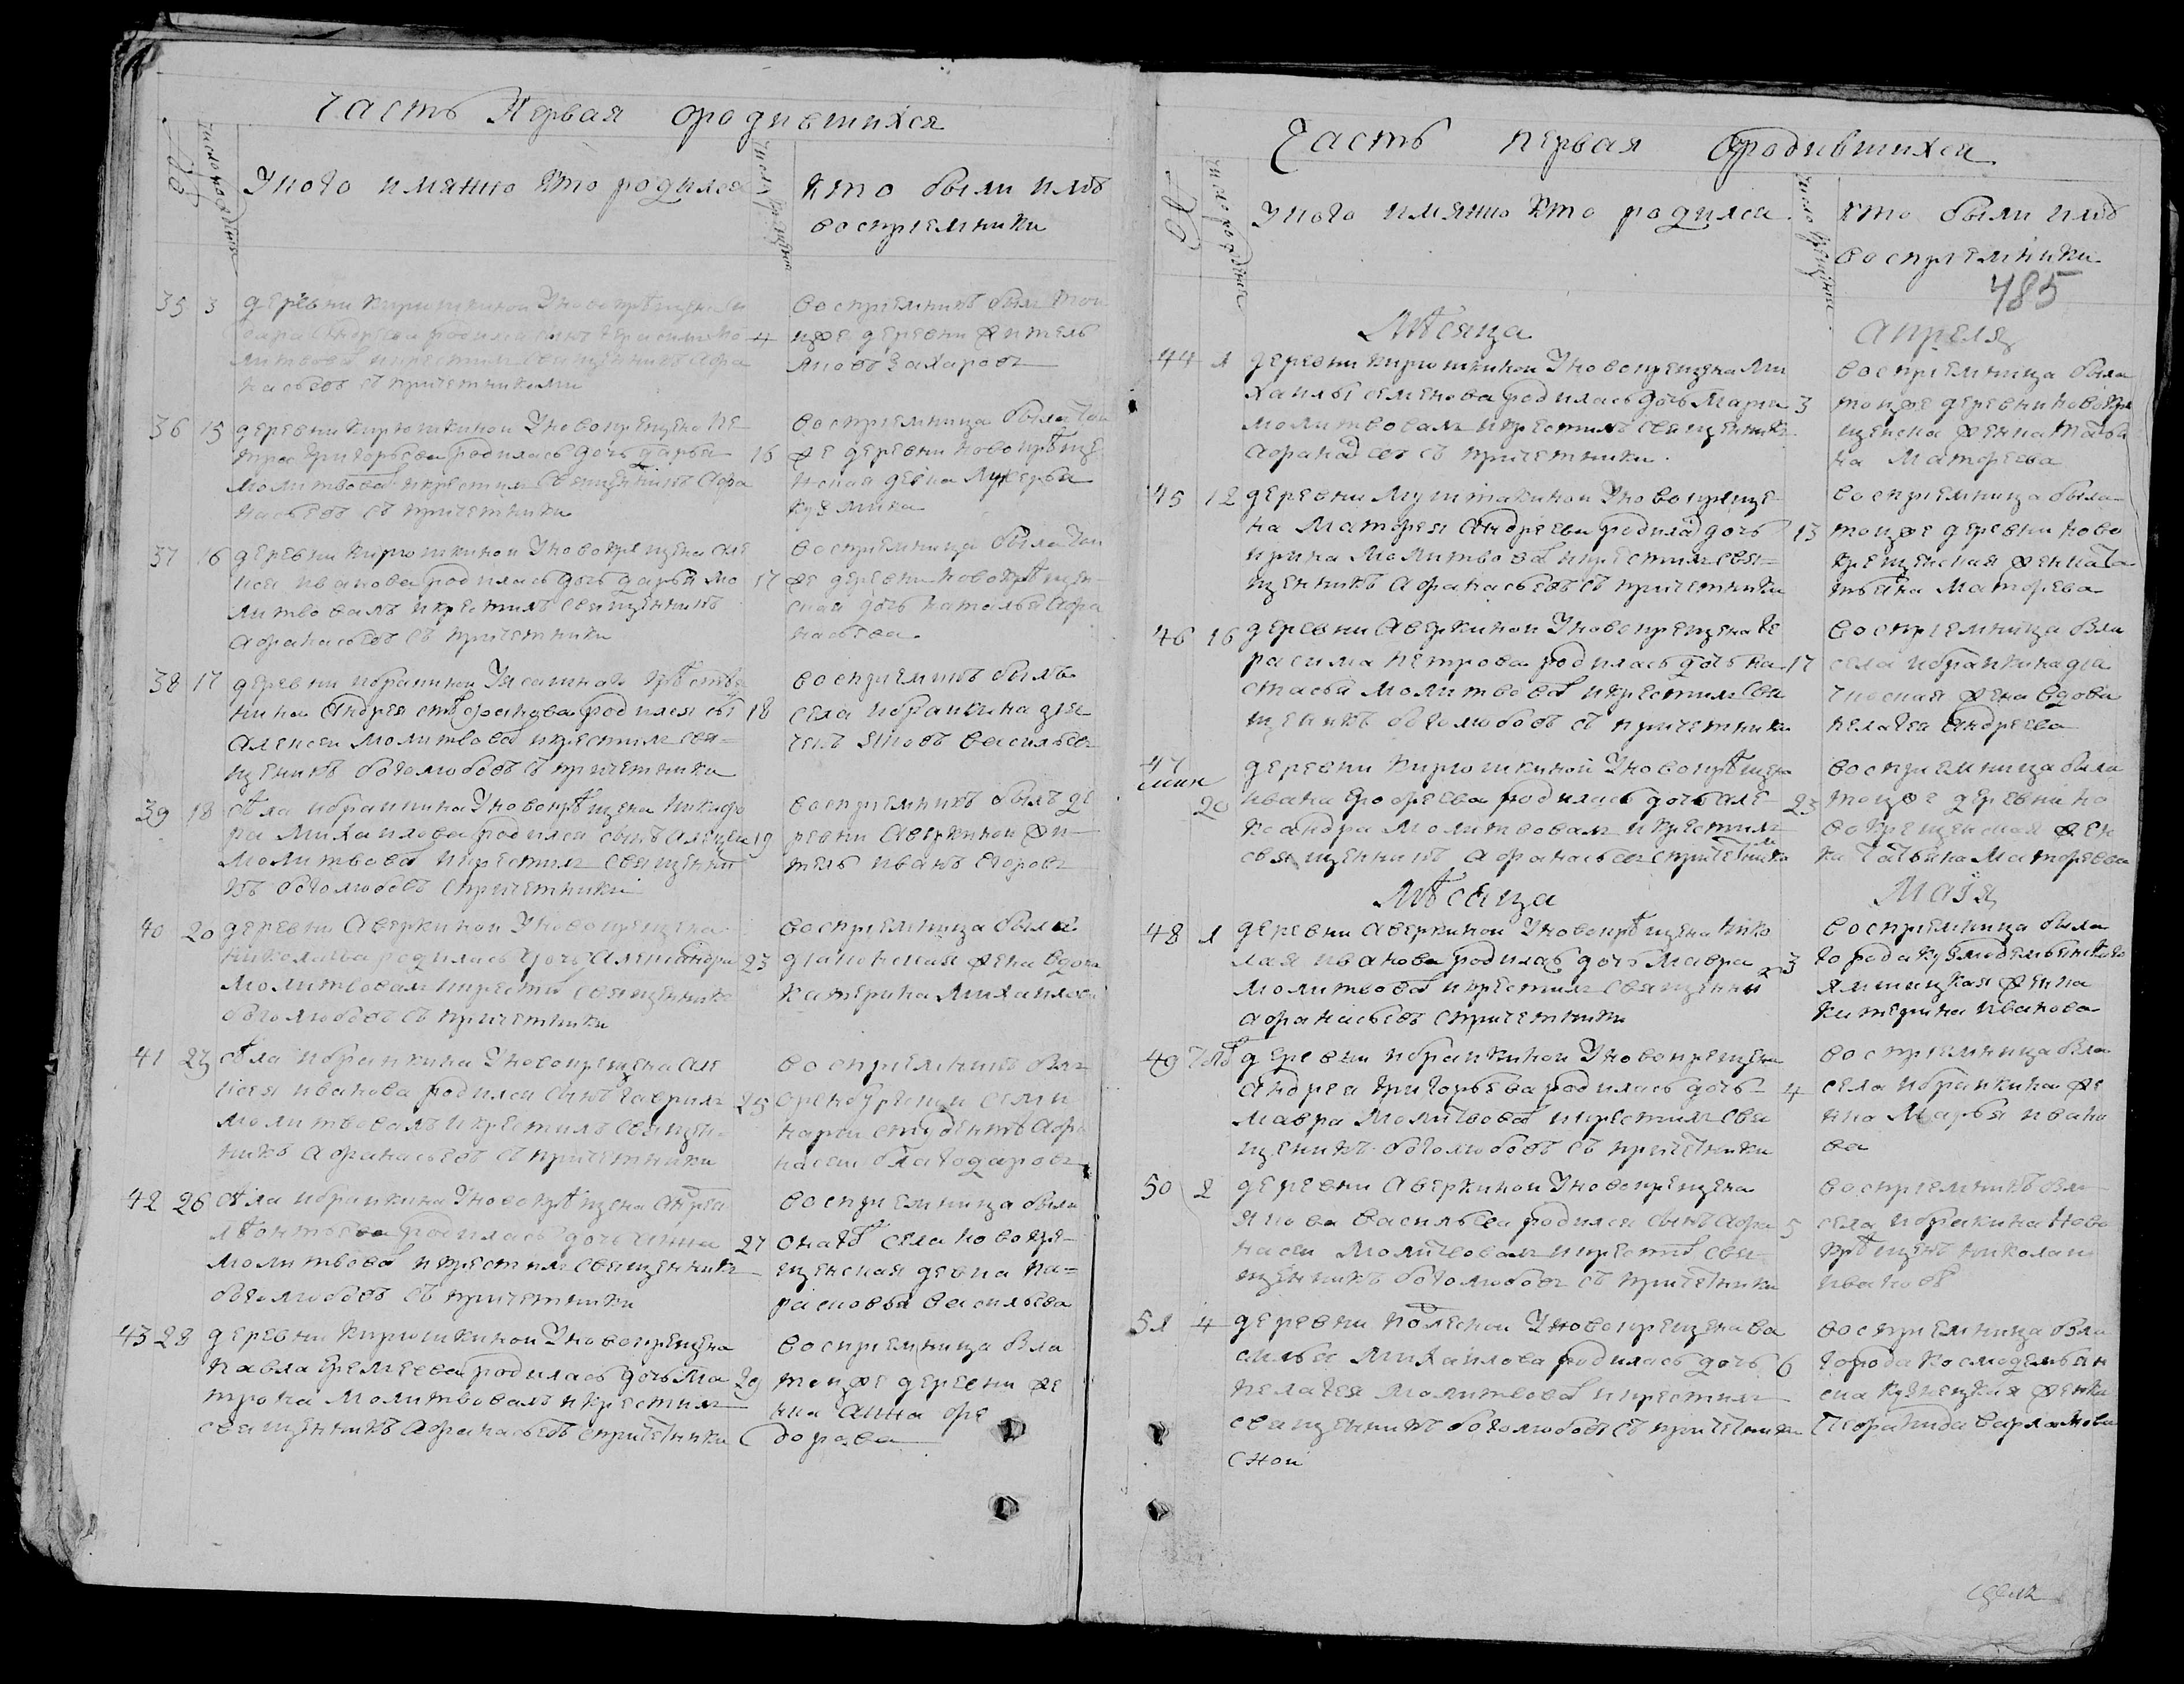 Часть Первая ородившихся
№ число рождения
Укого имянно кто родился
число крещения
кто были имъ
воспрiемники
35 3 деревни Кирюшкиной Уновокрѣщена
Андреева родился сынъ Герасимъ мо
литвовалъ икрестилъ священникъ Афа
насьевъ съ причетниками
4 воспрiемникъ былъ той
жде деревни житель
Яковъ Захаровъ
36 15 деревни Кирюшкиной Уновокрещена Пе
тра Григорьева родилась дочь Дарья
молитвовал икрестилъ священникъ Афа
насьевъ съ причетники
16 воспрiемница была той
же деревни новокрѣще
нская девка Лукерья
Кузмина
37 16 деревни Кирюшкиной Уновокрещена Але
ксея Иванова родилась дочь Дарья мо
литвовалъ икрестилъ священникъ
Афанасьевъ съ причетники
17 воспрiемница была той
же деревни новокрѣщен
ской дочь Наталья Афа
насьева
38 17 деревни Ибрайкиной Уясашнаго крѣстья
нина Андрея Стѣфанова родился сы
Алексей молитвовал икрестилъ свя
щеникъ боголюбовъ съ причетники
18 воспрiемникъ былъ
села Ибрайкина дья
чекъ Яковъ Васильевъ
39 18 сѣла Ибрайкина Уновокрѣщена Никифо
ра Михайлова родился сынъ Алексей
молитвовал икрестилъ священни
къ боголюбовъ спричетники
19 воспрiемникъ былъ де
ревни Аверкиной жи
тель Иванъ Егоровъ
40 20 деревни Аверкиной Уновокрещена
Николаева родилась дочь Александра
молитвовалъ икрестил священникъ
боголюбовъ съ причетники
23 воспрiемница была
дьяконская жена вдова
Катерина Михайлова
41 23 сѣла Ибрайкина Уновокрещена Але
ксея Иванова родился сынъ Гаврилъ
молитвовалъ икрестилъ священ
никъ Афанасьевъ съ причетники
25 воспрiемникъ был
оренбургской семи
нарии студентъ Афа
насей благодаровъ
42 26 сѣла Ибрайкина Уновокрѣщена Андрея
Лѣонтьева родилась дочь Анна
молитвовал икрестилъ священникъ
боголюбовъ съ причетники
27 воспрiемница была
онагѡ села новокре
щенская девка Па
расковья Васильева
43 28 деревни Кирюшкиной Уновокрещена
Павла Еремеева родилась дочь Ма
трона молитвовалъ икрестилъ
священникъ Афанасьевъ спричетники
29 воспрiемница была
тойже деревни же
нка Анна Фе
дорова
Часть первая Ородившихся
№ число рождения
Укого имянно кто родился
число крещения
кто были имъ
воспрiемники
485
Мѣсяца Апреля
44 1 деревни Кирюшкиной Уновокрещена Ми
хайлы Семенова родилась дочь Марья
молитвовалъ икрестилъ священникъ
Афанасьевъ съ причетники
3 воспрiемница была
тойже деревни новокре
щенска женка Татья
на Матфеева
45 12 деревни Мушитакиной Уновокреще
на Матфея Андреева родилась дочь
Ирина молитвовал икрестилъ свя
щенникъ Афанасьевъ съ причетники
13 воспрiемница была
тойже деревни ново
крещенская женка Та
тьяна Матфеева
46 16 деревни Аверкиной Уновокрещена Ге
расима Петрова родилась дочь На
стасья молитвовал икрестилъ свя
щеникъ боголюбовъ съ причетники
17 воспрiемница была
села Ибрайкина дья
чковская жена вдова
Пелагея Андреева
47 20 деревни Кирюшкиной Уновокрѣщена
Ивана Ерофеева родилась дочь Але
ксандра молитвовалъ икрестилъ
священникъ Афанасьевъ спричетники
23 воспрiемница была
тойже деревни но
вокрещенская жен
ка Татьяна Матфеева
Мѣсяца Маiя
48 1 деревни Аверкиной Уновокрѣщена Нико
лая Иванова родилась дочь Мавра
молитвовал икрестилъ священни
Афанасьевъ спричетники
3 воспрiемница была
города Кузмодемьянскаго
Ямщицкая женка
Катерина Иванова
49 тогѡ деревни Ибрайкиной Уновокрещена
Андрея Григорьева родилась дочь
Мавра молитвовал икрестилъ свя
щеникъ боголюбовъ съ причетники
4 воспрiемница была
села Ибрайкина же
нка Марья Ивано
ва
50 2 деревни Аверкиной Уновокрещена
Якова Васильева родился сынъ Афа
насей молитвовалъ икрестил свя
щенникъ боголюбовъ съ причетники
5 воспрiемникъ был
села Ибрайкина ново
крѣщенъ Николай
Ивановъ
51 4 деревни Полеской Уновокрещена Ва
силья Михайлова родилась дочь
Пелагея молитвовал икрестилъ
священникъ боголюбовъ съ причетники
6 воспрiемница была
города Космодемьян
ска Купецкая женка
Варламова